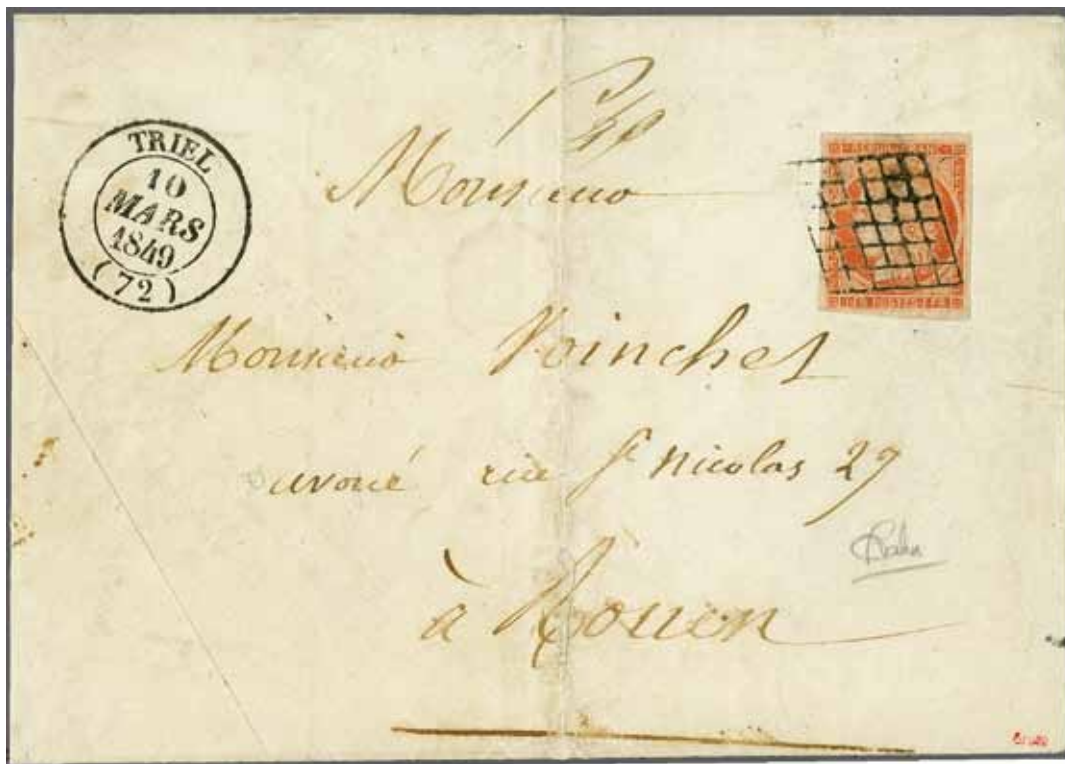 TRIEL
10
MARS
1849
(72)
Monsieur
Monsieur Poinchet
avoué rue St Nicolas 29
à Rouen